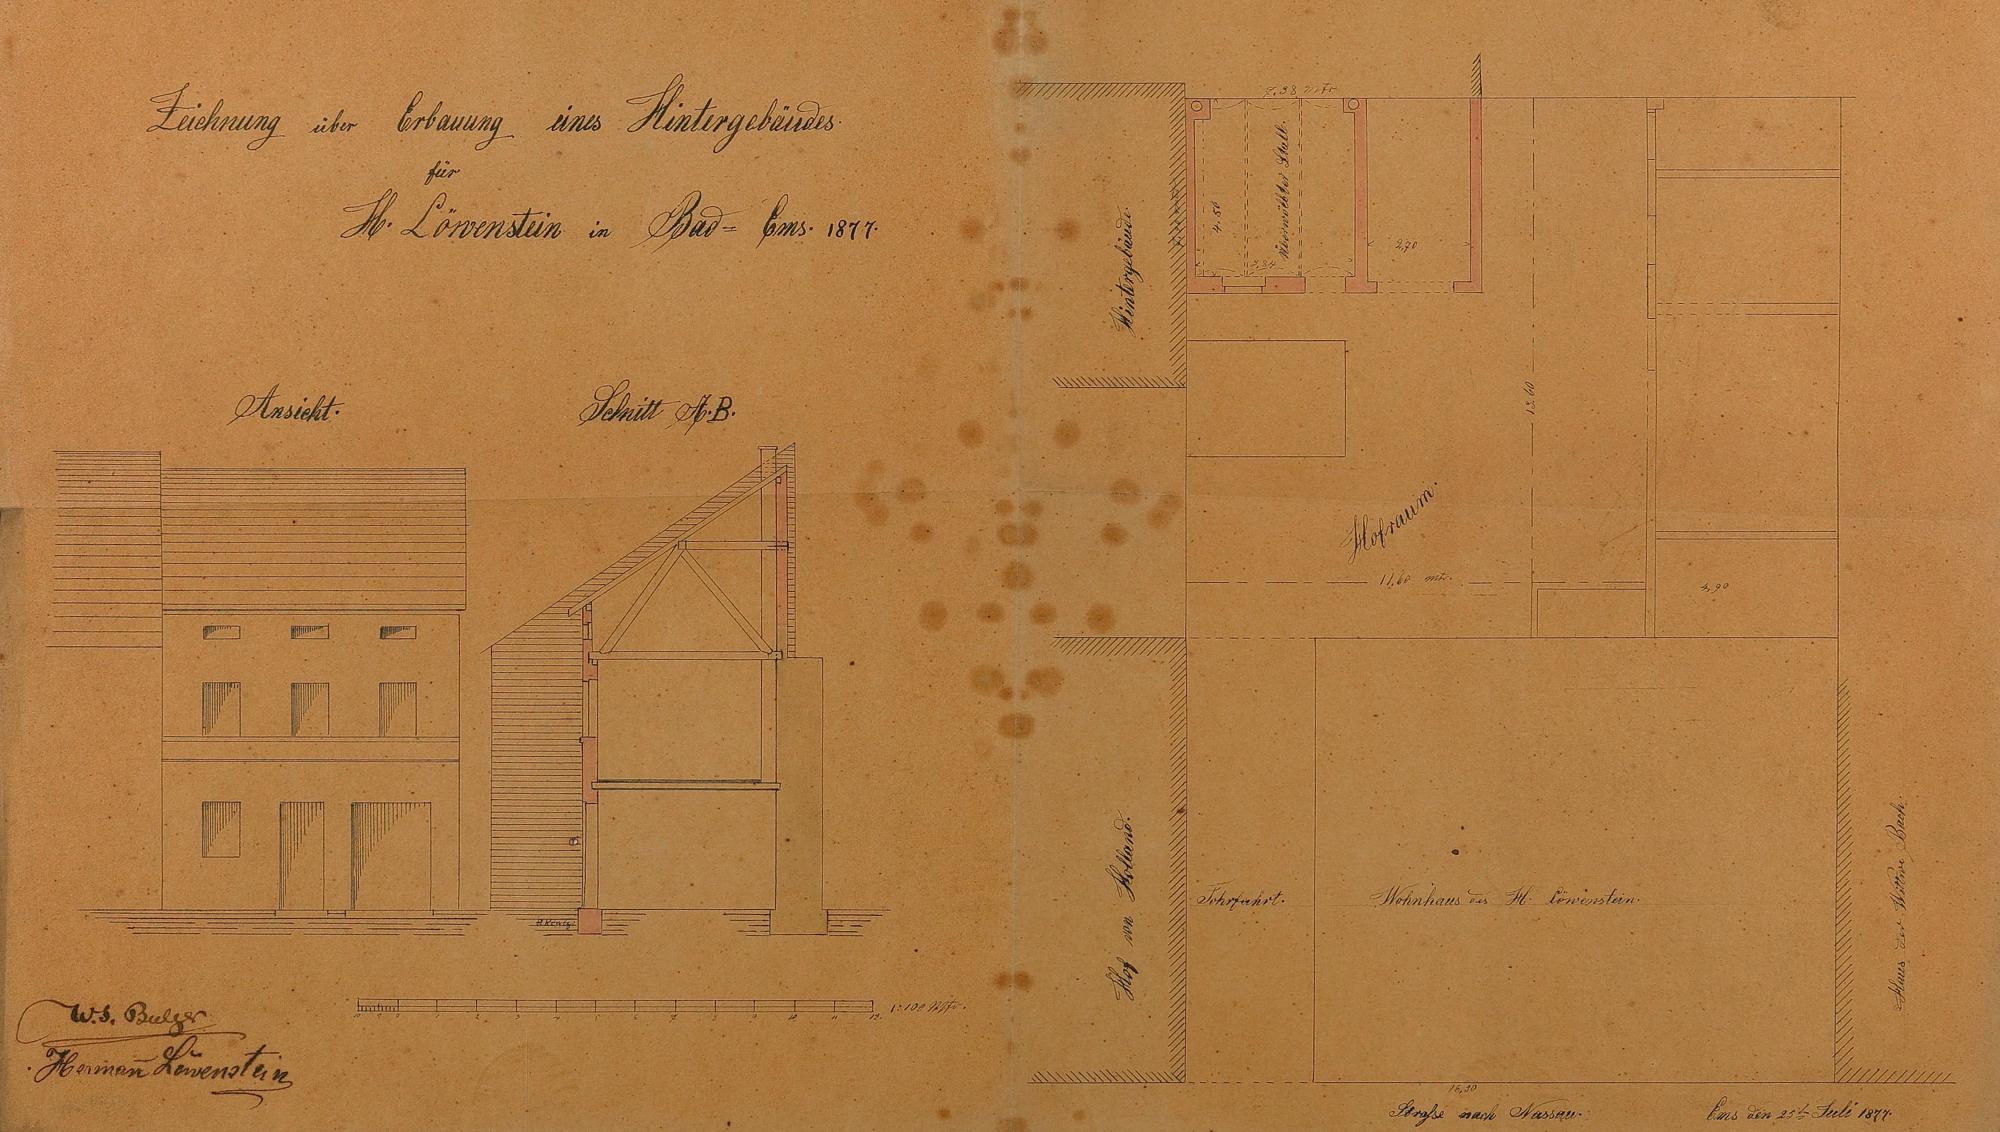 Zeichnung über Erbauung eines Hintergebäudes
für
H. Löwenstein in Bad-Ems. 1877.
Ansicht.
Schnitt A.B.
W.S. Balzer
Herman̄ Löwenstein
1:100 Mtr.
7,38 mtr
4.50
überwölbter Stall.
2,70
Hintergebäude.
13.60
Hofraum.
11,60 mtr.
4,90
Hof von Holland.
Thorfahrt.
Wohnhaus des H. Löwenstein.
Haus der Wittwe Bach.
16,30
Straße nach Nassau.
Ems den 25t Juli 1877.